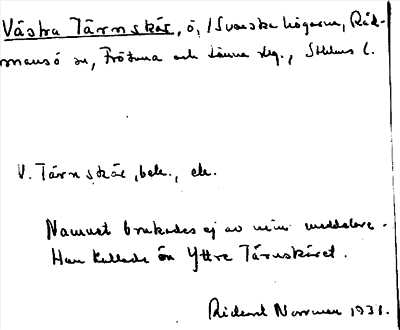 Västra Tärnskär, ö, i Svenska högarna, Råd-
mansö sn, Frötuna och Länna skg., Sthlms l.
V. Tärnskär, bek., ek.
Namnet brukades ej av min meddelare.
Han kallade ön Yttre Tärnskäret.
Rickard Norrman 1931.